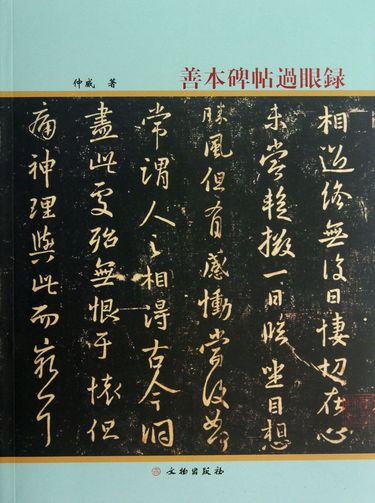 善本碑帖過眼録
仲威 著
相過終無復日悽切在心
未嘗輟撥一日臨坐目想
勝風但有感慟當復如何
常謂人之相得古今洞
盡此處殆無恨于懷但
痛神理與此而窮耳
文物出版社